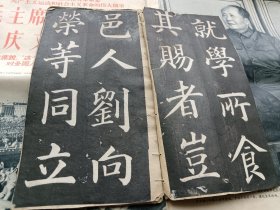 就學所食
其賜者豈
邑人劉向
榮等同立
主席
庆